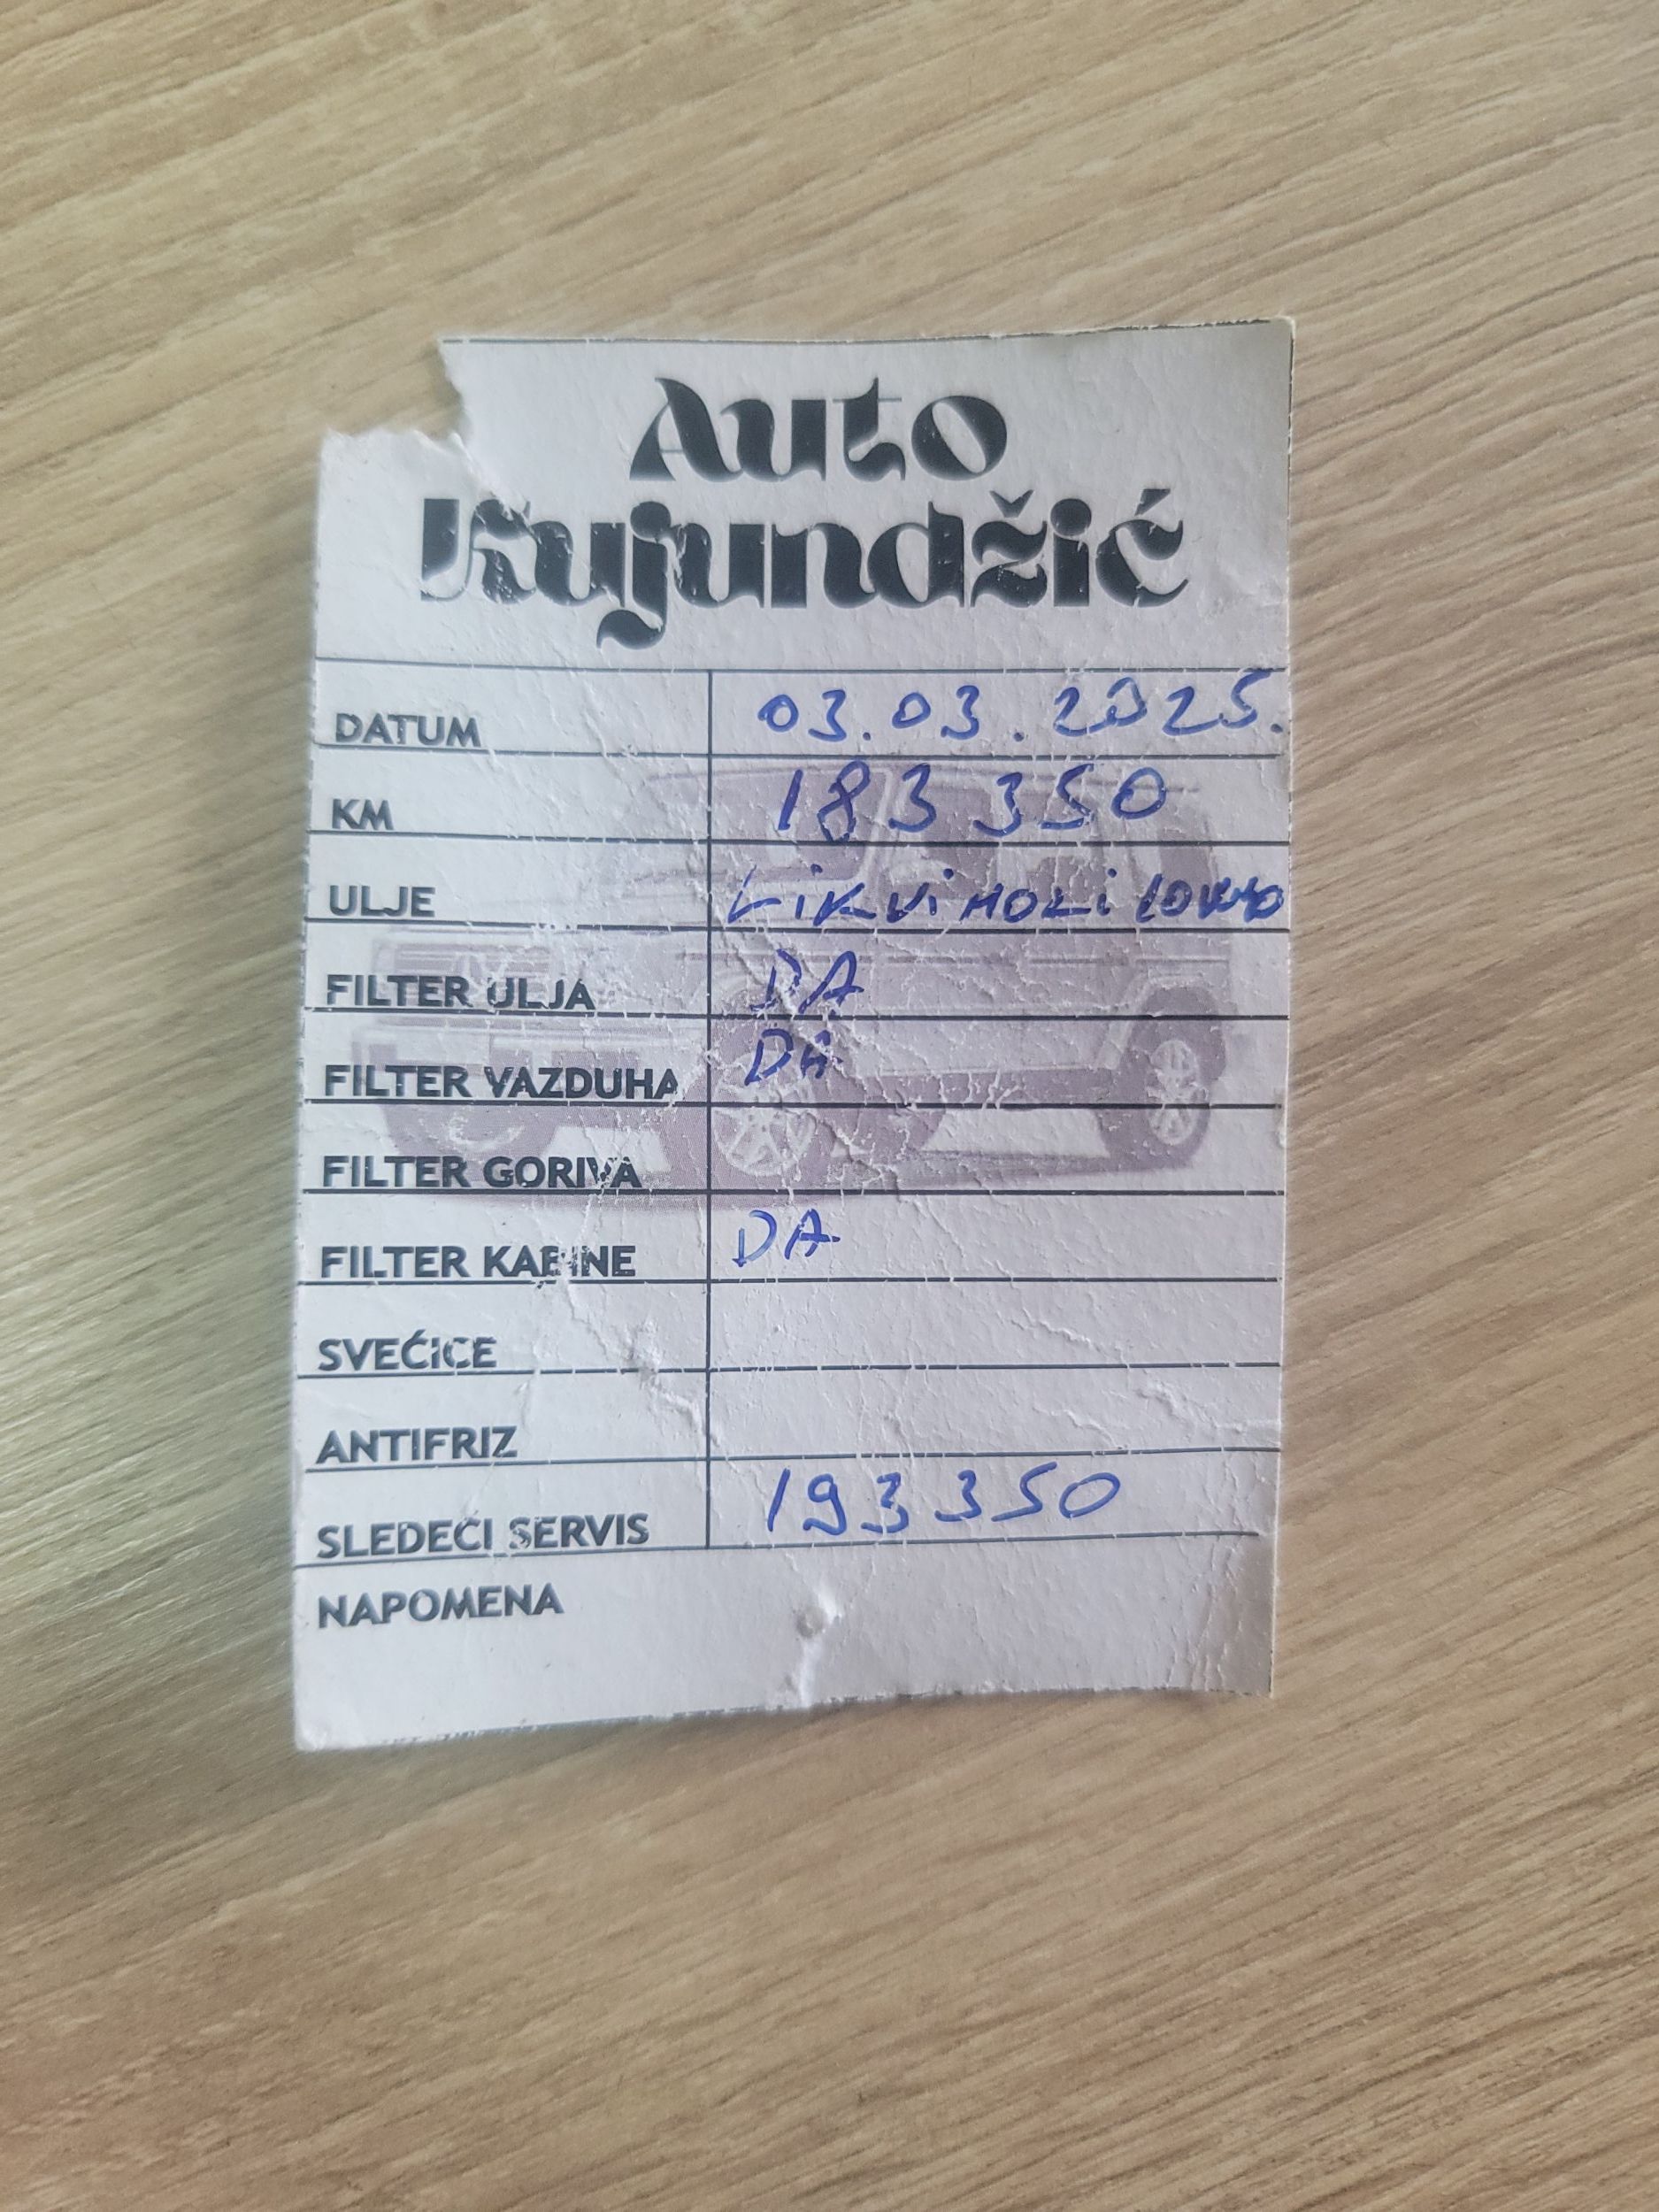 Auto
Kujundžić
DATUM 03.03.2025.
KM 183 350
ULJE LiKViMOLi 10W40
FILTER ULJA DA
FILTER VAZDUHA DA
FILTER GORIVA
FILTER KABINE DA
SVEĆICE
ANTIFRIZ
SLEDEĆI SERVIS 193 350
NAPOMENA